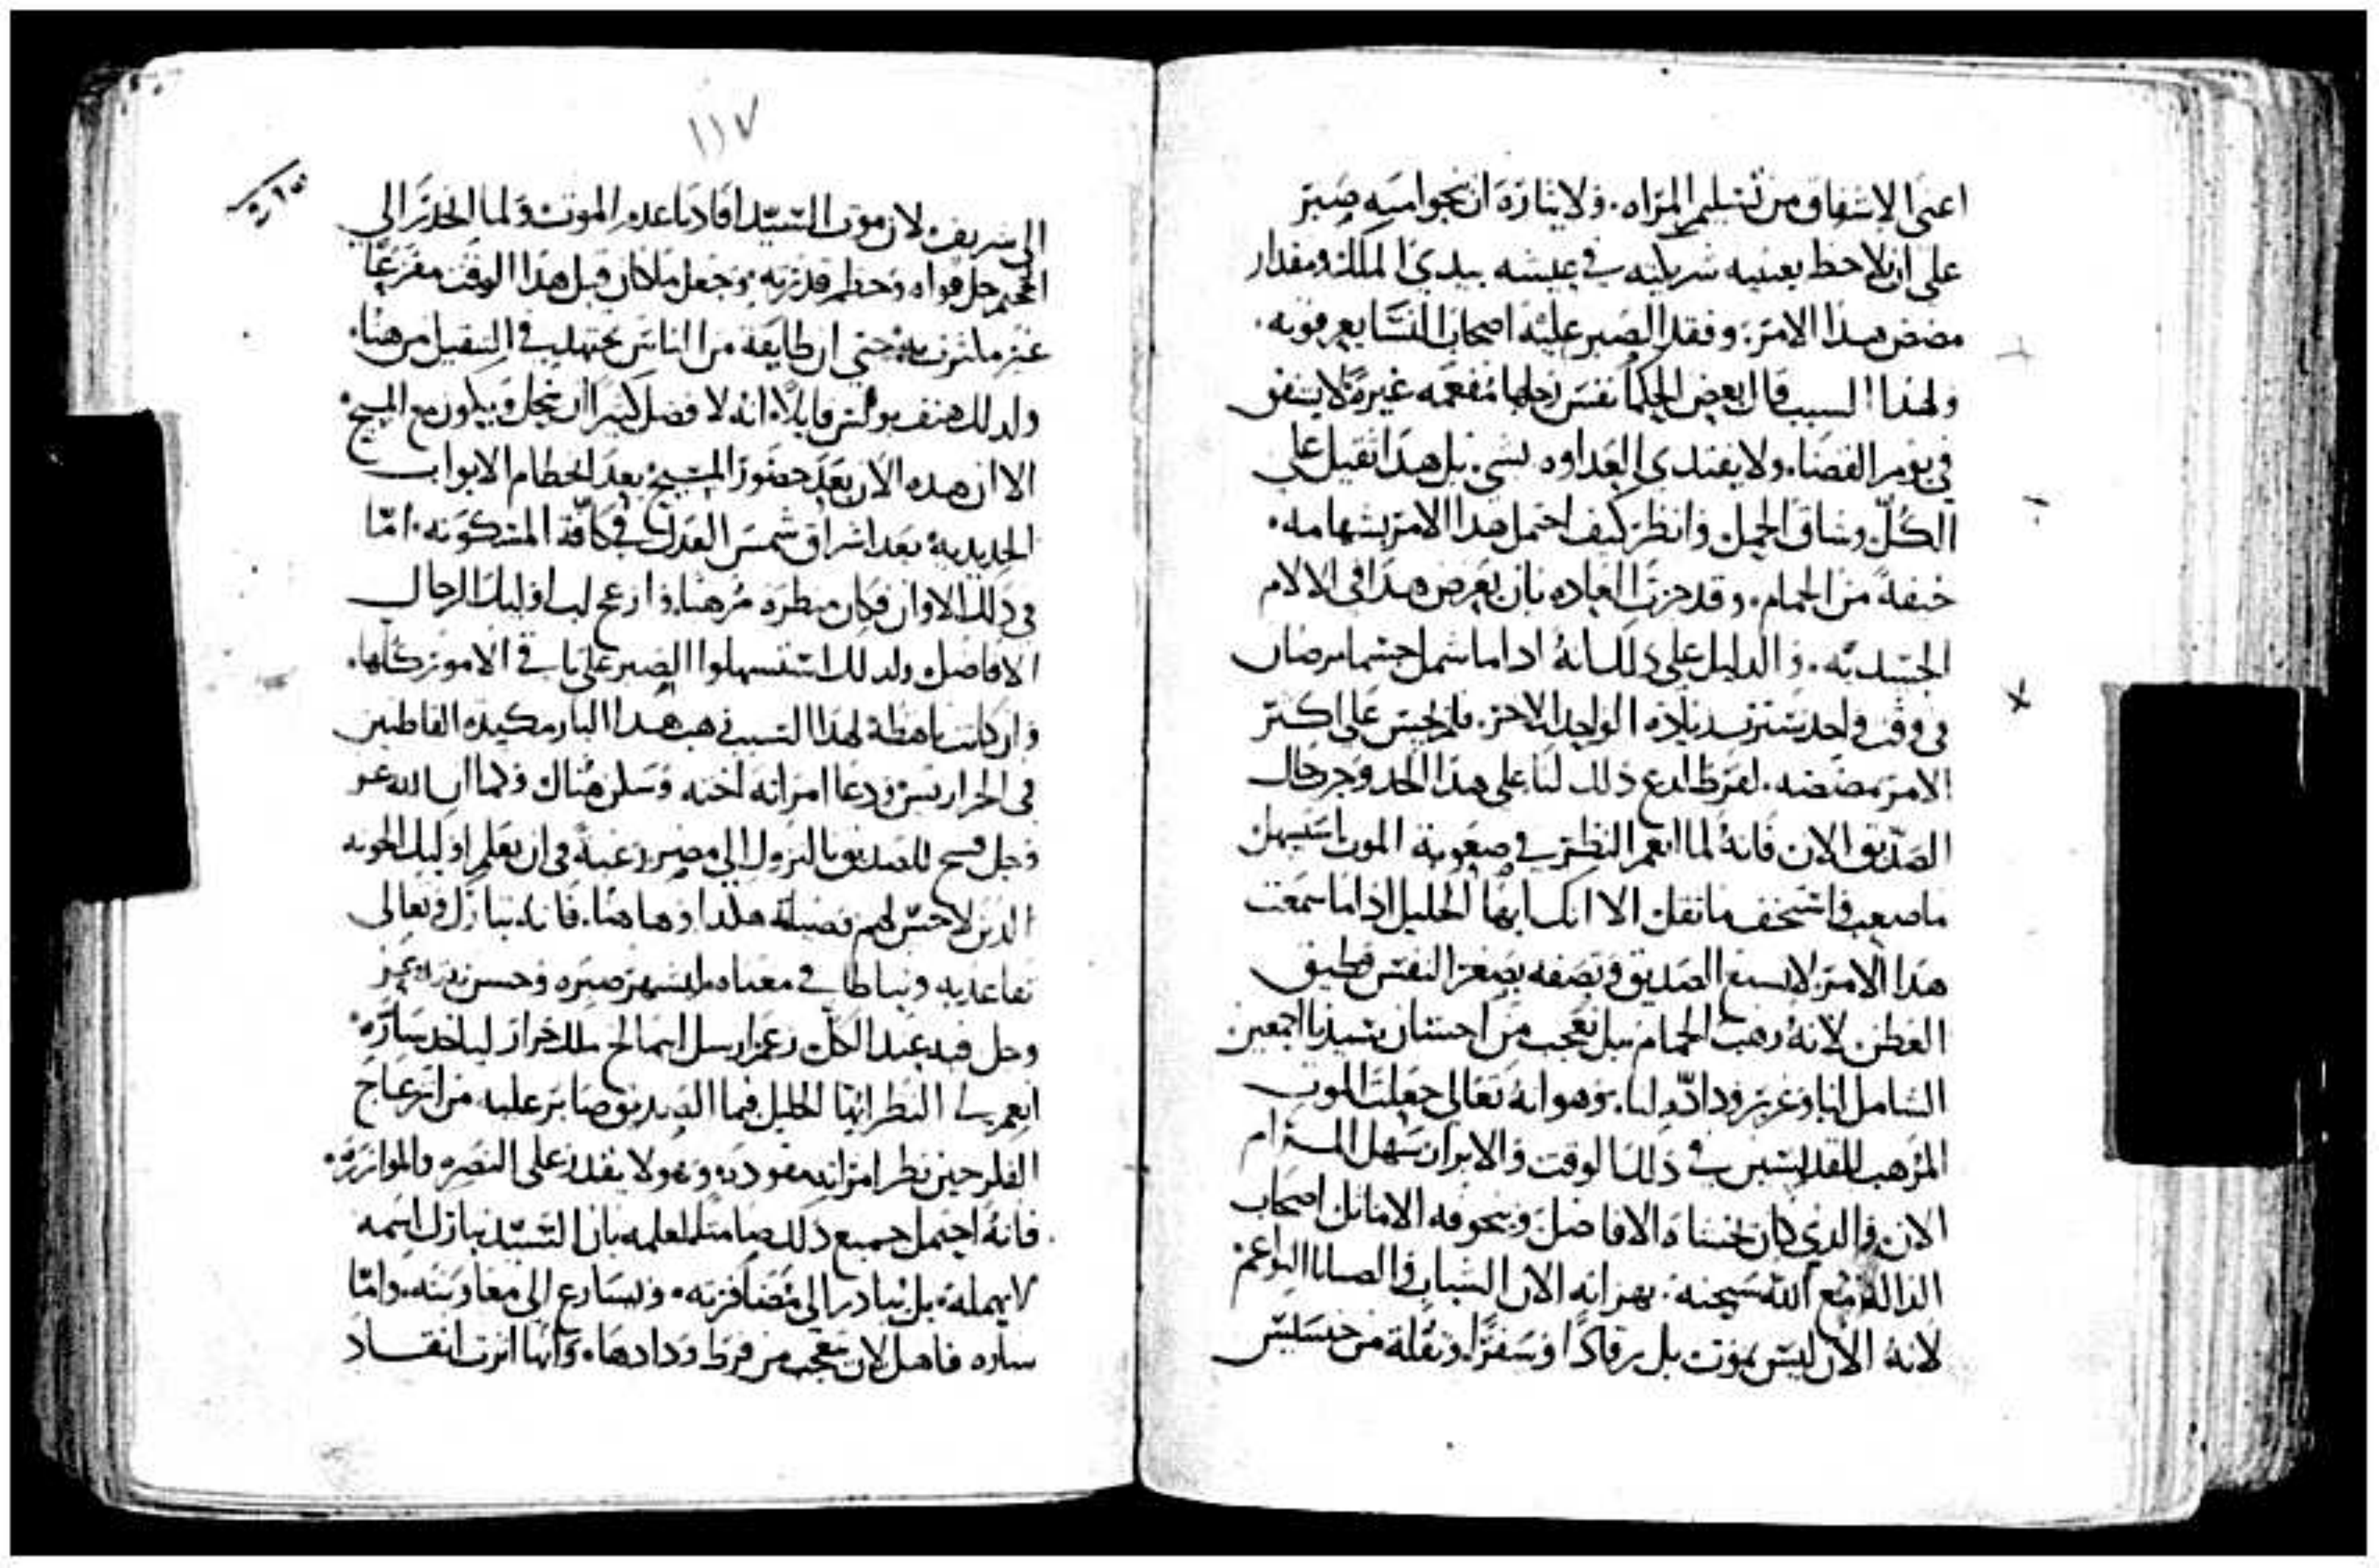 اعنى الاشفاق من تسليم المراه. ولا يثاره ان ينجوا منه صبر
على ان يلاحظ بعينيه شريكته في عيشه بيدي الملك ومقدار
مضض هذا الامر. وفقد الصبر عليه اصحاب النسا يعرفونه.
ولهذا السبب قال بعض الحكما نفس رجلها مفعمه غيرة لا يشفق
في يوم القضا. ولا يفتدي العداوه بشي. بل هذا ثقيل على
الكل وشاق الحمل وانظر كيف احتمل هذا الامر بشهامه.
خيفة من الحمام. وقد جرت العاده بان يعرض هذا في الالام
الجسديه. والدليل على ذلك انه اذا ما شمل جسما مرضان
في وقت واحد يستزيد بلاذه الواحد الاخر. فلم يحس على اكثر
الامر بمضضه. لفرط لدع ذلك لنا على هذا الحد وجر حال
الصديق الان فانه لما انعم النظر في صعوبة الموت استسهل
ما صعب واستخف ما ثقل الا انك ايها الخليل اذا ما سمعت
هذا الامر لا تسمع الصديق وتصفه بصغر النفس
الفطن لانه رهب الحمام بل تعجب من احسان سيدنا اجمعين
الشامل لنا وغزير وداده لنا. وهو انه تعالى جعل الموت
المرهب للقديسين في ذلك الوقت والابرار سهل المرام
الان والذي كان يخشاه الافاضل ويخوفه الاماثل اصحاب
الداله مع الله سبحنه. يهزا به الان الشبان والصبايا
لانه الان ليس بموت بل رقادا وسفرا ونقلة من خسيس
١١٧
الى شريف لان موت السيد افادنا عدم الموت ولما انحدر الى
الجحيم حل قواه وحطم قدرته وجعل ما كان قبل هذا الوقت مفزعا
غير ما شرف به حتى ان طايفه من الناس يجتهد في النقيل من هنا.
ولذلك هتف بولس قايلا. انه لا فضل كثيرا ان ينحل ويكون مع المسيح.
الا ان هذه الان بعد حضور المسيح بعد انحطام الابواب
الحديديه بعد اشراق شمس العدل في كافة المسكونه. اما
في ذلك الاوان فكان منظره مرهبا وازعج لب اوليك الرجال
الافاضل ولذلك استسهلوا الصبر على باقي الامور كلها.
وان كانت باهظة لهذا السبب رهب هذا البار مكيدة القاطنين
في الجراريس ودعا امراته اخته وسكن هناك وكما ان الله عز
وجل فسح للصديق بالنزول الى مصر رغبة في ان يعلم اوليك الخونه
الذين لا حس لهم فضيلة هكذا وها هنا. فانه تبارك وتعالى
تقاعد به وتباطا في معناه ليشهر صبره وحسن
وحل فيه عبد الكل زعم ارسل ابيمالخ ملك خرار لياخذ ساره.
انعم لي النظر ايها الخليل فيما الصديق صابر عليه من انزعاج
الفكر حين نظر امراته مقوده وهو لا يقدر على النصره والموازره.
فانه احتمل جميع ذلك صامتا لعلمه بان السيد تبارك اسمه
لا يهمله. بل يبادر الى مضافرته. ويسارع الى معاونته. واما
ساره فاهل لان يتعجب من فرط ودادها. وانها اثرت انقاذ